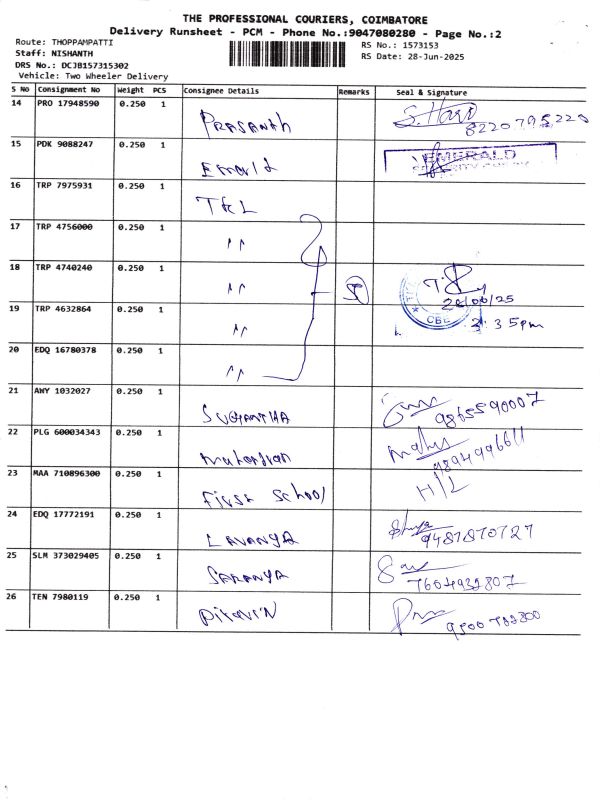 THE PROFESSIONAL COURIERS, COIMBATORE
Delivery Runsheet - PCM - Phone No.:9047080280 - Page No.:2
Route: THOPPAMPATTI
RS No.: 1573153
Staff: NISHANTH
RS Date: 28-Jun-2025
DRS No.: DCJB157315302
Vehicle: Two Wheeler Delivery
S No Consignment No Weight PCS Consignee Details Remarks Seal & Signature
14 PRO 17948590 0.250 1 PRASANth S. Hari 8220795220
15 PDK 9088247 0.250 1 Emarld EMERALD
16 TRP 7975931 0.250 1 T&L
17 TRP 4756000 0.250 1 "
18 TRP 4740240 0.250 1 " 5 28/06/25
19 TRP 4632864 0.250 1 " CBE 3.35pm
20 EDQ 16780378 0.250 1 "
21 AMY 1032027 0.250 1 SUGANTHA 9865590007
22 PLG 600034343 0.250 1 9894996611
23 MAA 710896300 0.250 1 First School H/L
24 EDQ 17772191 0.250 1 LAVANYA 9487870727
25 SLM 373029405 0.250 1 SARANYA 7604932807
26 TEN 7980119 0.250 1